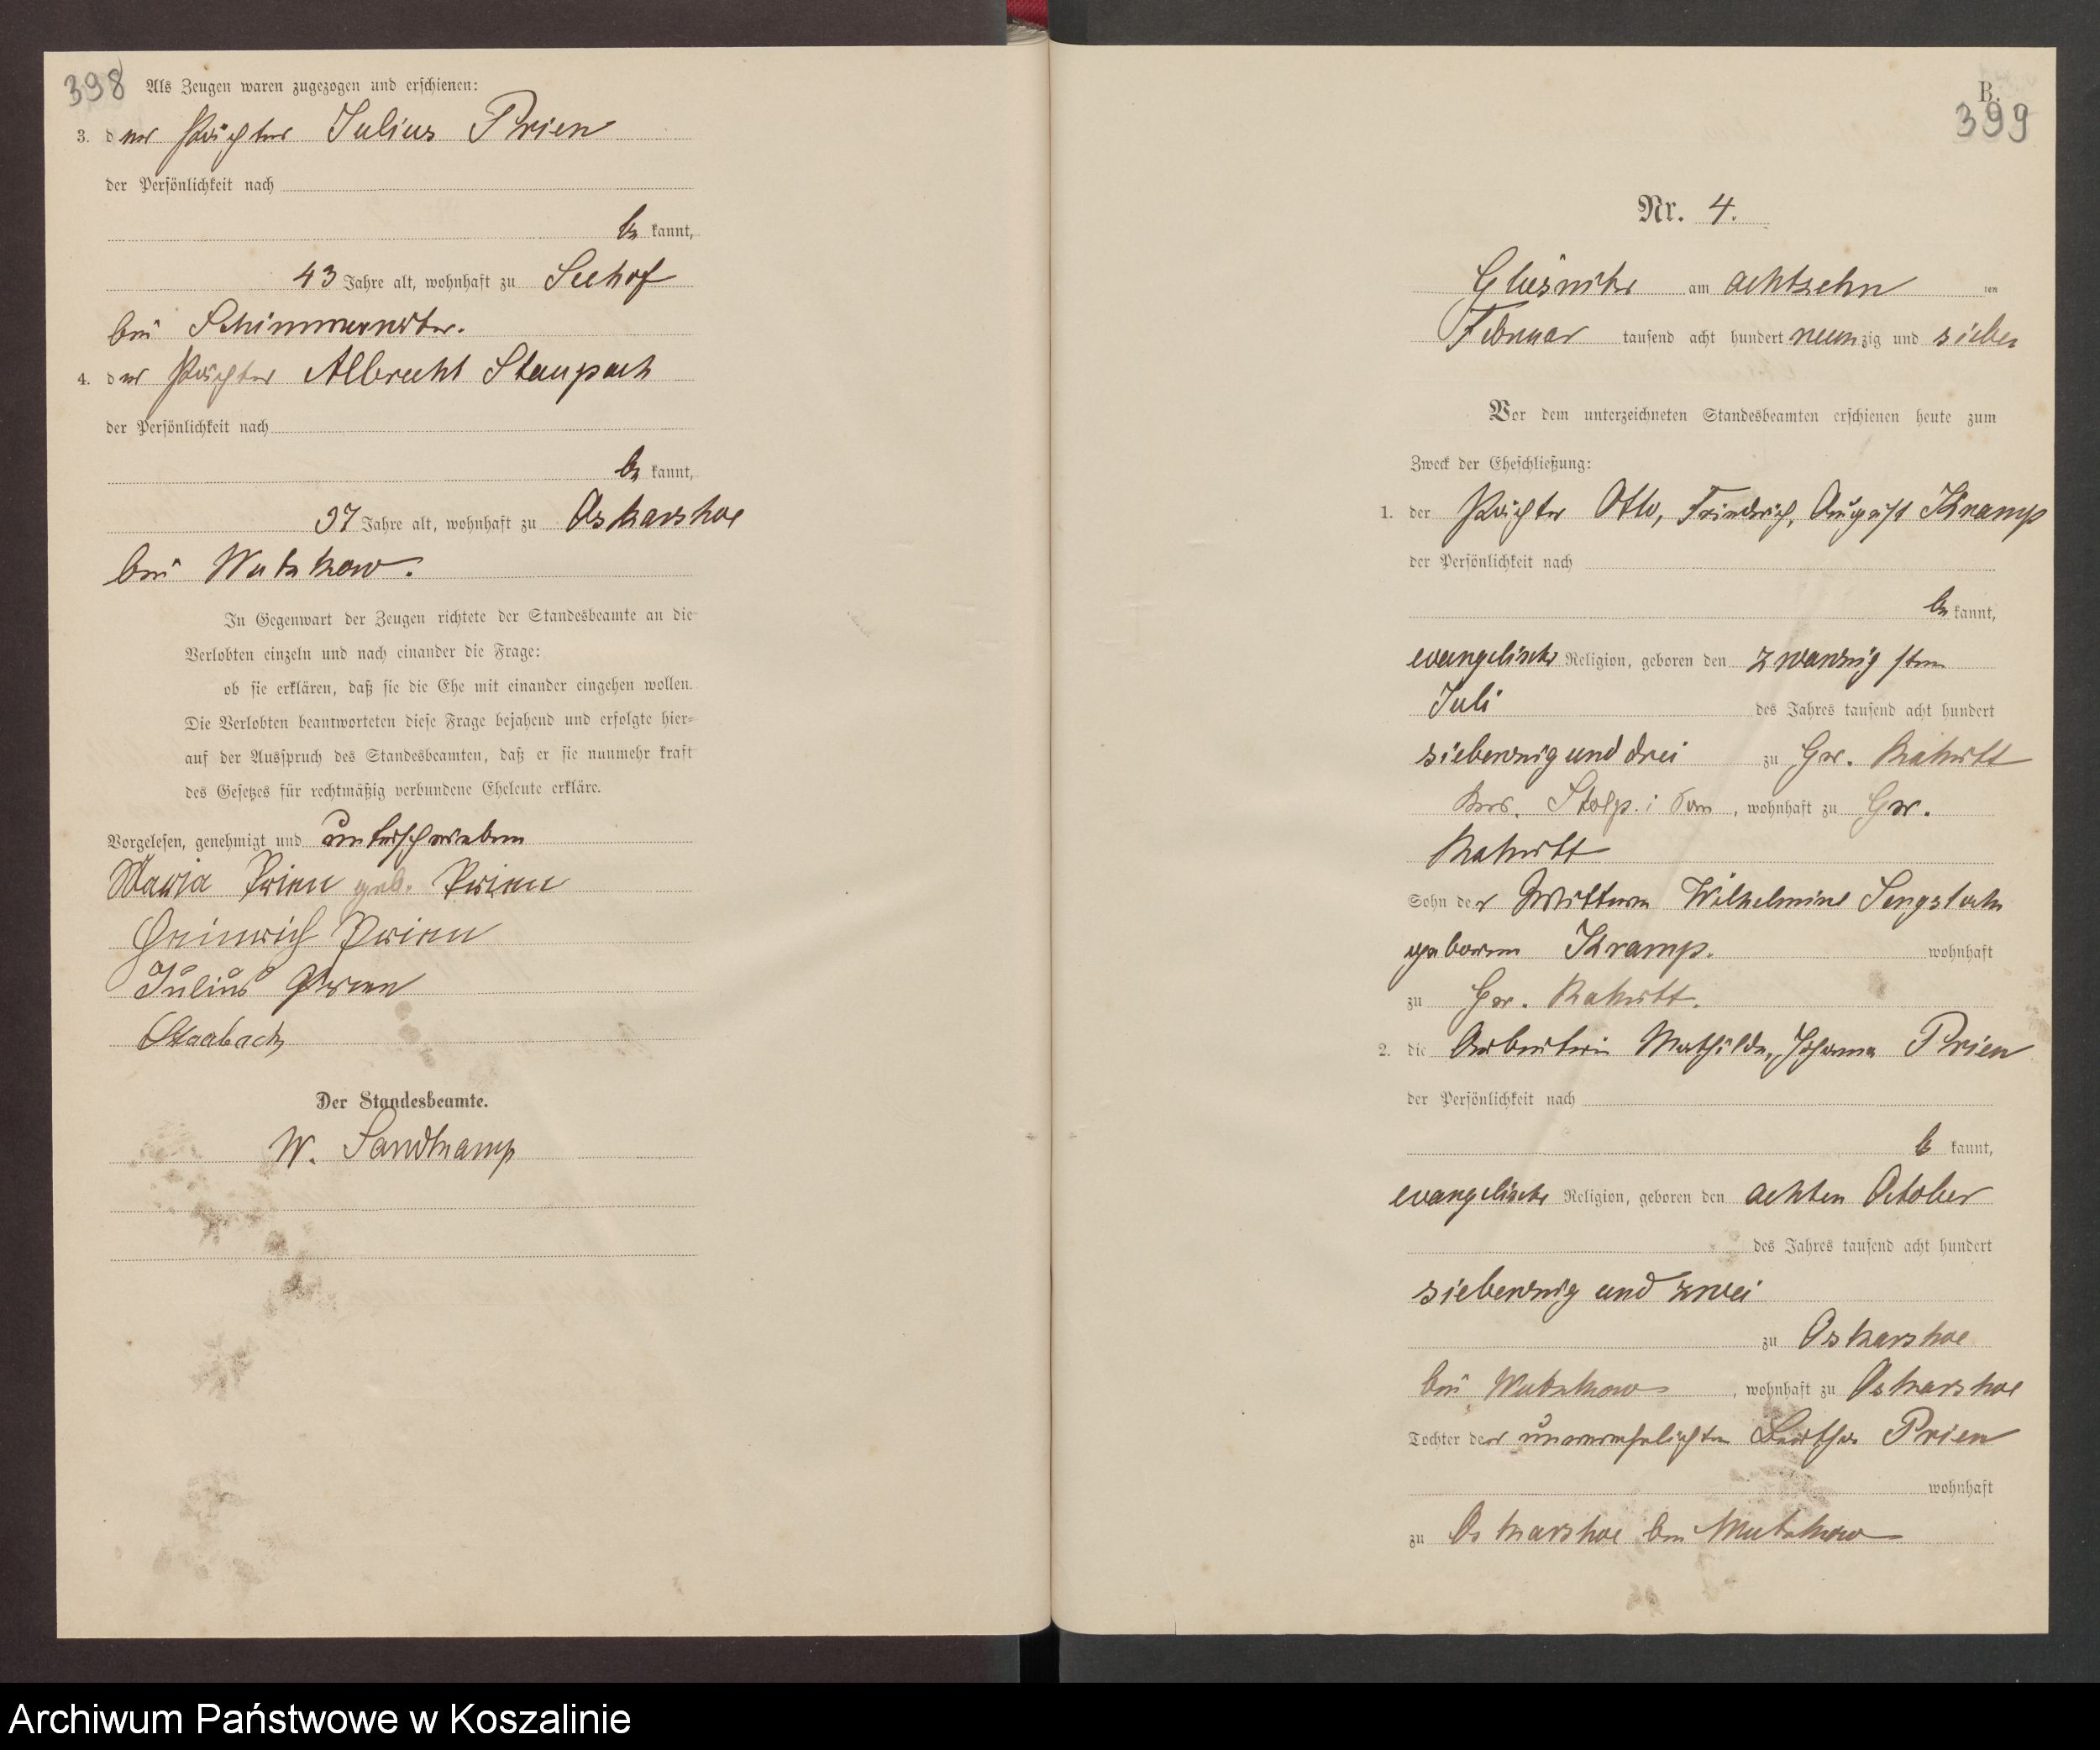 398 Als Zeugen waren zugezogen und erschienen:
3. der Pächter Julius Prien
der Persönlichkeit nach
be kannt,
43 Jahre alt, wohnhaft zu Seehof
bei Schimmerwitz.
4. der Pächter Albrecht Staupach
der Persönlichkeit nach
be kannt,
37 Jahre alt, wohnhaft zu Oskarshoe
bei Wutzkow.
In Gegenwart der Zeugen richtete der Standesbeamte an die
Verlobten einzeln und nach einander die Frage:
ob sie erklären, daß sie die Ehe mit einander eingehen wollen.
Die Verlobten beantworteten diese Frage bejahend und erfolgte hier-
auf der Ausspruch des Standesbeamten, daß er sie nunmehr kraft
des Gesetzes für rechtmäßig verbundene Eheleute erkläre.
Vorgelesen, genehmigt und unterschrieben
Maria Prien geb. Prien
Heinrich Prien
Julius Prien
Staabach
Der Standesbeamte.
W. Sandkamp
B.
399
Nr. 4.
am achtzehn ten
Februar tausend acht hundert neunzig und sieben
Vor dem unterzeichneten Standesbeamten erschienen heute zum
Zweck der Eheschließung:
1. der Pächter Otto, Friedrich, August Kramp
der Persönlichkeit nach
be kannt,
evangelischer Religion, geboren den zwanzigsten
Juli des Jahres tausend acht hundert
siebenzig und drei zu Gr. Rakitt
Krs. Stolp i. Pom, wohnhaft zu Gr.
Rakitt
Sohn der Wittwe Wilhelmine Sengstock
geboren Kramp. wohnhaft
zu Gr. Rakitt.
2. die Arbeiterin Mathilde, Johanna Prien
der Persönlichkeit nach
be kannt,
evangelischer Religion, geboren den achten October
des Jahres tausend acht hundert
siebenzig und zwei
zu Oskarshoe
bei Wutzkow, wohnhaft zu Oskarshoe
Tochter der unverehelichten Bertha Prien
wohnhaft
zu Oskarshoe bei Wutzkow
Archiwum Państwowe w Koszalinie